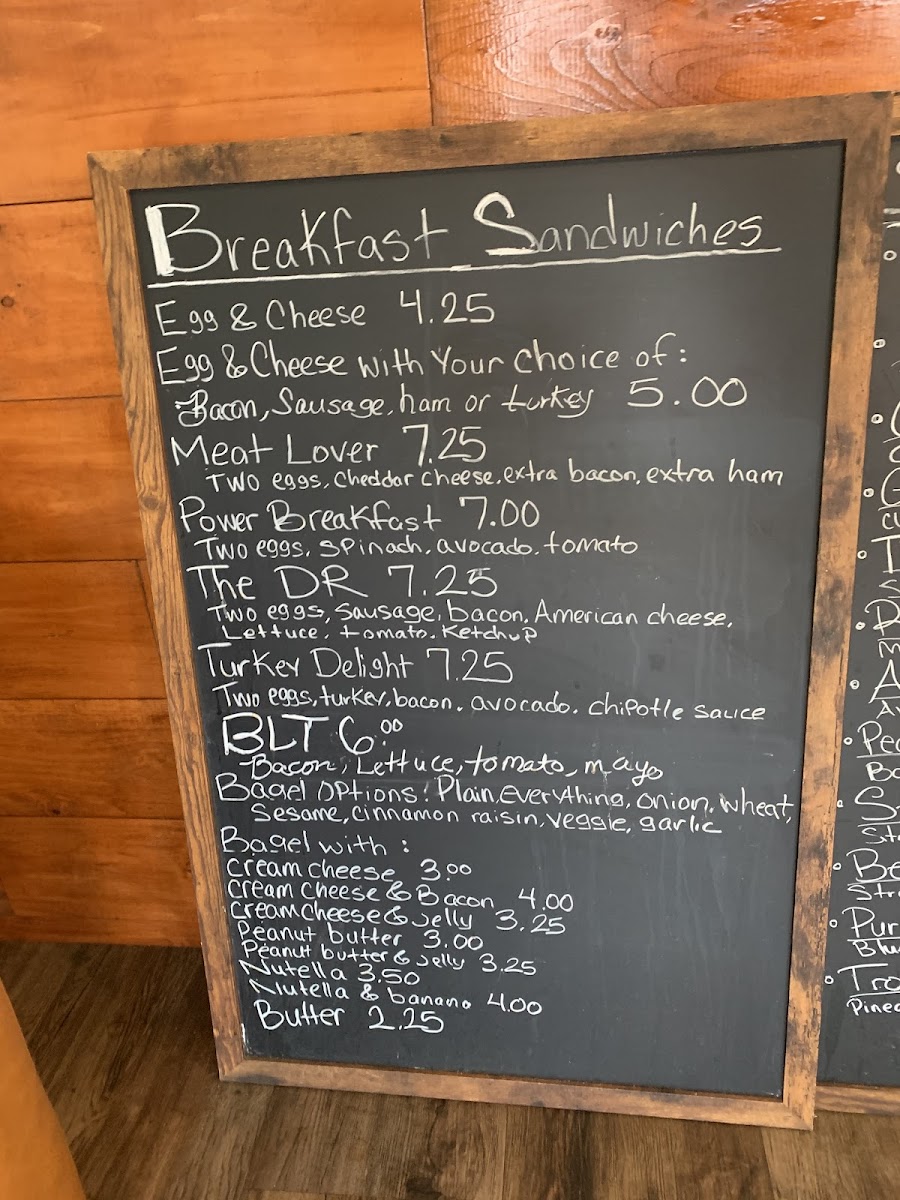 Breakfast Sandwiches
Egg & Cheese 4.25
Egg & Cheese with Your choice of:
Bacon, Sausage, ham or turkey 5.00
Meat Lover 7.25
Two eggs, cheddar cheese, extra bacon, extra ham
Power Breakfast 7.00
Two eggs, spinach, avocado, tomato
The DR 7.25
Two eggs, sausage, bacon, American cheese,
Lettuce, tomato, Ketchup
Turkey Delight 7.25
Two eggs, turkey, bacon, avocado, chipotle sauce
BLT 6.00
Bacon, Lettuce, tomato, mayo
Bagel options: Plain, everything, onion, wheat,
Sesame, cinnamon raisin, veggie, garlic
Bagel with:
cream cheese 3.00
cream cheese & Bacon 4.00
cream cheese & Jelly 3.25
Peanut butter 3.00
Peanut butter & Jelly 3.25
Nutella 3.50
Nutella & banana 4.00
Butter 2.25